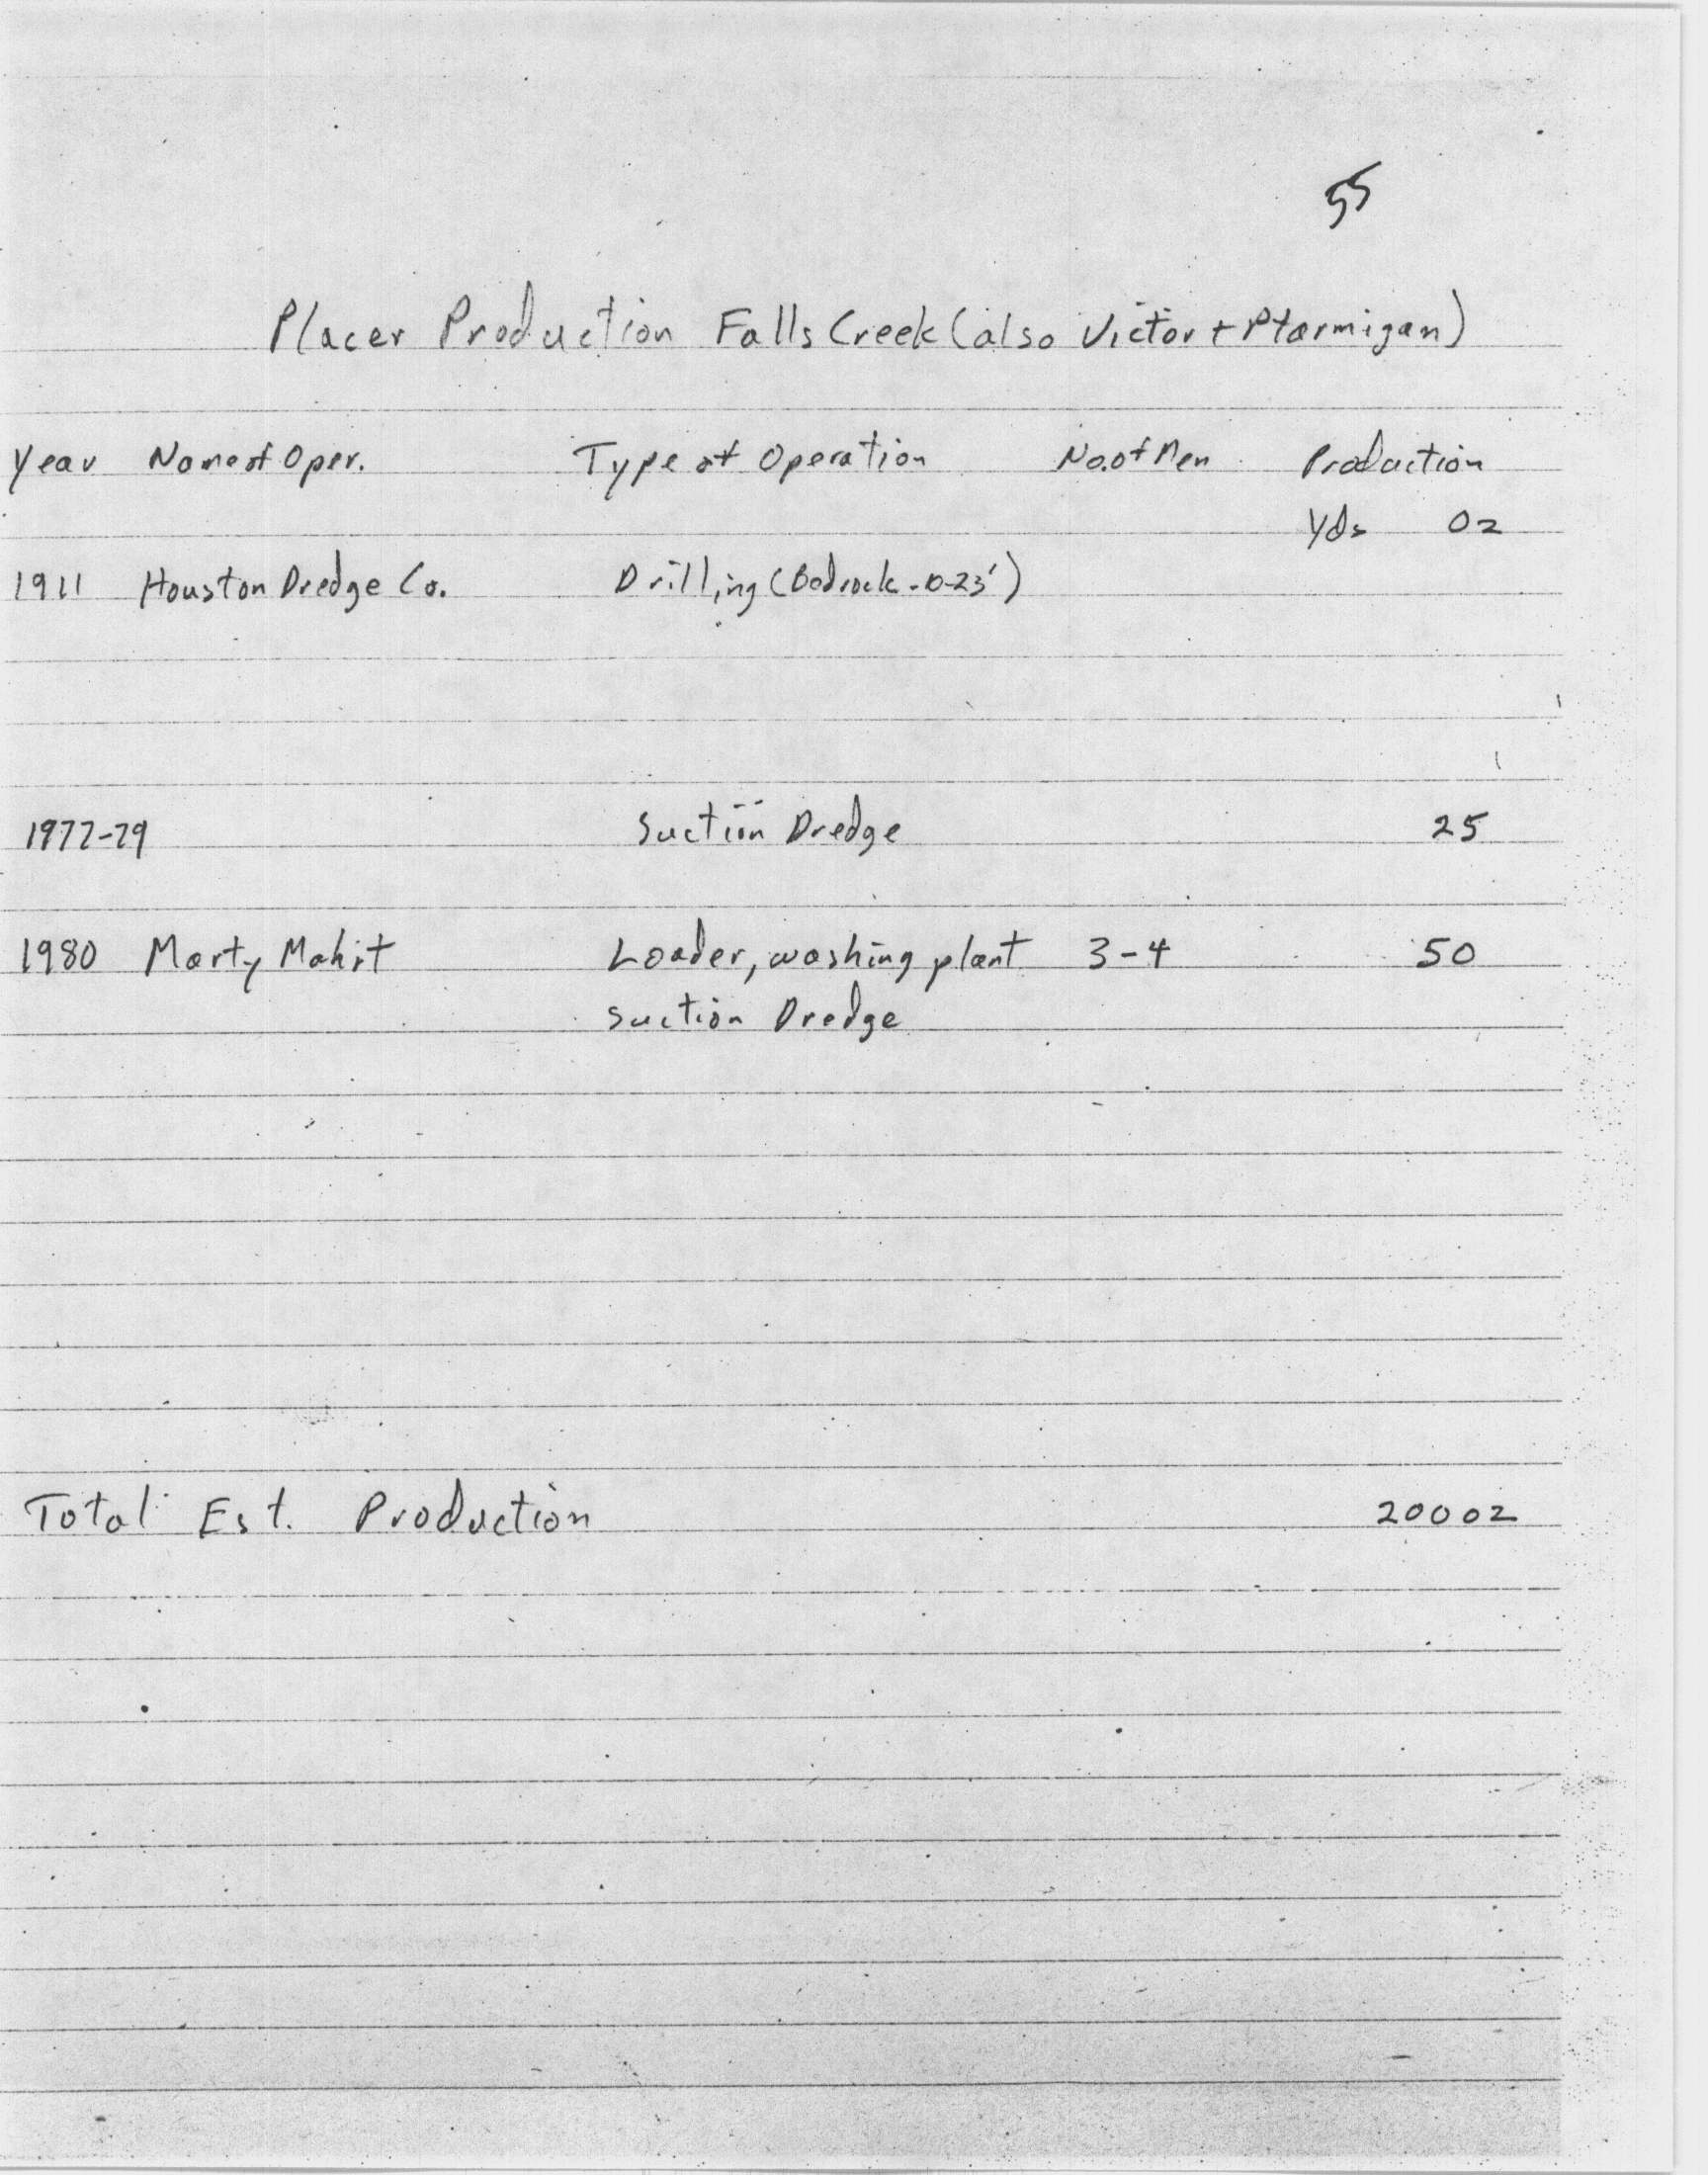 55
Placer Production Falls Creek (also Victor + Ptarmigan)
Year Name of Oper. Type of Operation No. of Men Production
Yds Oz
1911 Houston Dredge Co. Drilling (Bedrock - 10-23')
1977-79 Suction Dredge 25
1980 Marty Mahit Loader, washing plant 3-4 50
Suction Dredge
Total Est. Production 200 oz